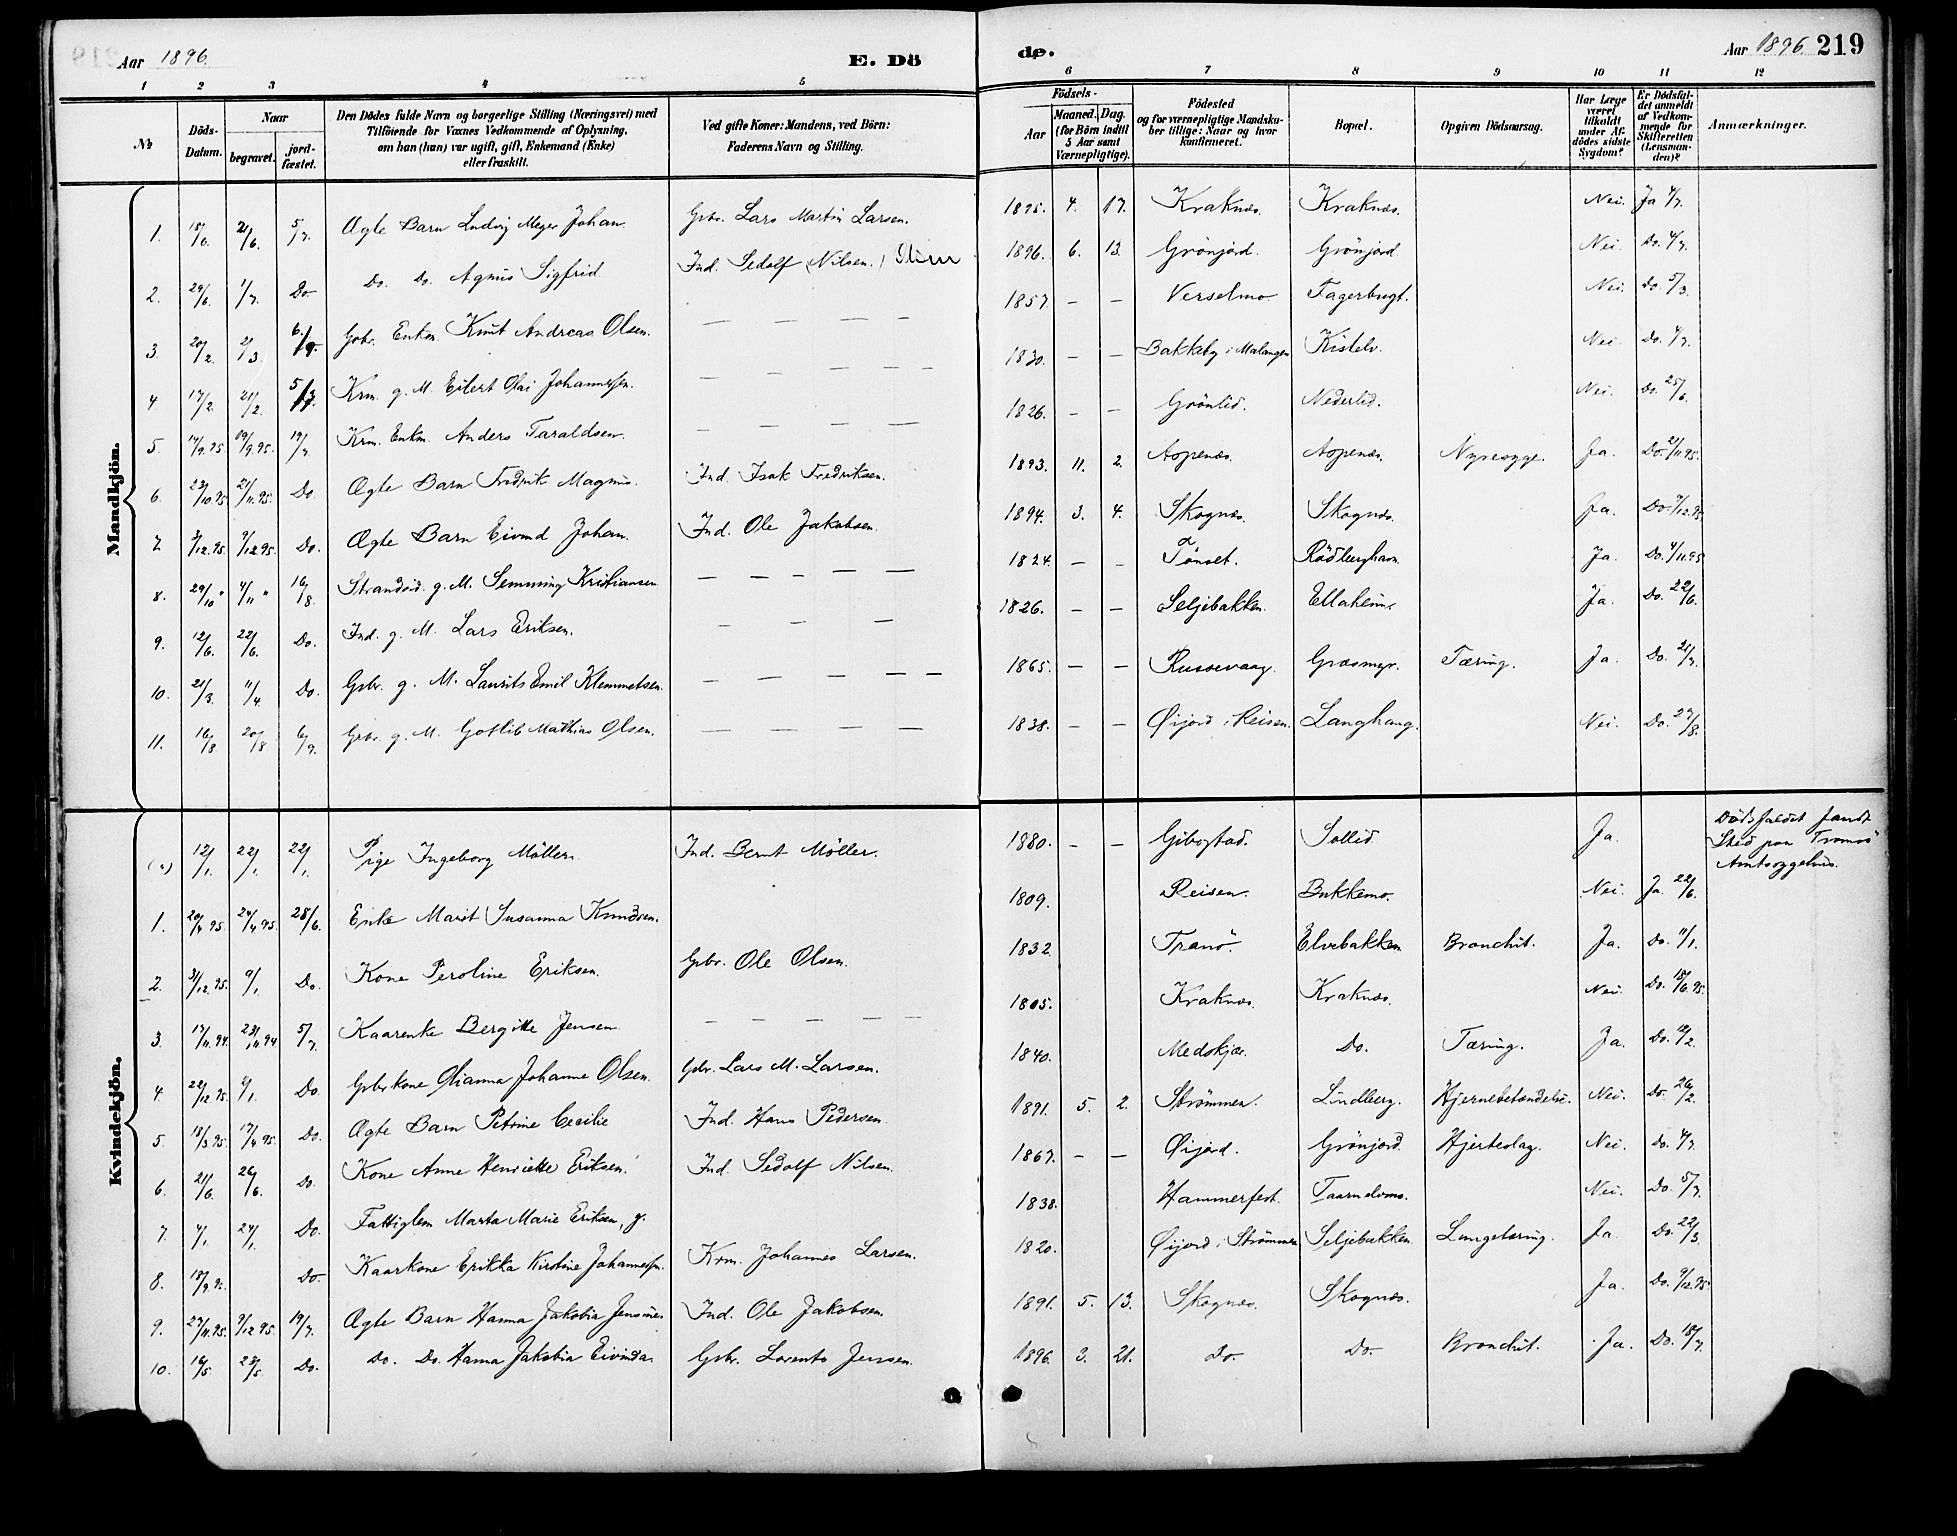 Aar 1896. E. Dö de. Aar 1896. 219
1 2 3 4 5 6 7 8 9 10 11 12
No. Döds-Datum. Naar begravet. jordfæstet. Den Dödes fulde Navn og borgerlige Stilling (Næringsvei) med Tilföiende for Voxnes Vedkommende af Oplysning, om han (hun) var ugift, gift, Enkemand (Enke) eller fraskilt. Ved gifte Koner: Mandens, ved Börn: Faderens Navn og Stilling. Födsels- Aar Maaned. Dag. (for Börn indtil 5 Aar samt Værnepligtige). Födested og for værnepligtige Mandskaber tillige: Naar og hvor konfirmeret. Bopæl. Opgiven Dödsaarsag. Har Læge været tilkaldt under Afdödes sidste Sygdom? Er Dödsfaldet anmeldt af Vedkommende for Skifteretten (Lensmanden)? Anmærkninger.
Mandkjön.
1. 18/6. 21/6. 5/7. Ægte Barn Ludvig Meyer Johan. Gbr. Lars Martin Larsen. 1895. 4. 17. Kraknæs. Kraknæs. Nei. Ja 4/7.
2. 29/6. 1/7. Do. Do. Do. Agnus Sigfrid Ind. Sedolf (Nilsen.) 1896. 6. 13. Grönjord. Grönjord. Nei. Do. 4/7.
3. 20/2. 2/3. 6/9. Gbr. Enkm. Knut Andreas Olsen. — — — — 1857. — — Verselmo Fagerbugt. Nei. Do. 5/3.
4. 17/2. 21/2. Krm. g. M. Eilert Olai Johannessen. — — — — 1830. — — Bakkeby i Malangen Kistelv. Nei. Do. 4/7.
5. 14/9.95. 19/9.95. 19/7. Krm. Enkm. Anders Taraldsen. — — — — 1826. — — Grönlid. Nederlid. Nei. Do. 25/6.
6. 23/10.95. 21/11.95. Do. Ægte Barn Fredrik Magnus. Ind. Isak Fredriksen. 1893. 11. 2. Aspenæs. Aspenæs. Nyresyge. Ja. Do. 21/11.95.
7. 3/12.95. 9/12.95. Do. Ægte Barn Eivind Johan. Ind. Ole Jakobsen. 1894. 3. 4. Skognæs. Skognæs. Ja. Do. 9/12.95.
8. 29/10 " 4/11 " 16/8. Strandsid. g. M. Semming Kristiansen — — — — — 1824. — — Tönset. Rödberghavn Ja. Do. 4/11.95
9. 12/6. 22/6. Do. Ind. g. M. Lars Eriksen. — — — 1826. — — Seljebakken. Ellaheim. Ja. Do. 22/6.
10. 21/3. 11/4. Do. Gbr. g. M. Laurits Emil Klemmetsen. — — — — — 1865. — — Russevaag. Græsmyr. Tæring. Ja. Do. 21/7.
11. 16/8 20/8 6/9. Gbr. g. M. Gotlib Mathias Olsen. — — — — 1838. — — Øijord i Reisen. Langhaug. Nei. Do. 24/8.
Kvindekjön.
12/1. 22/1. 22/1. Pige Ingeborg Möller. Ind. Bernt Möller. 1880. — — Gibostad. Sollid. Ja. Dödsfaldet fandt
Sted paa Tromsö
Amtssygehus.
1. 20/4 95. 24/4 95. 28/6. Enke Marit Susanna Knudsen. 1809. Reisen. Bukkemo. Nei. Ja. 22/6.
2. 31/12.95. 9/1. Do. Kone Peroline Eriksen. Gbr. Ole Olsen. 1832. Tranö. Elvebakken Bronchit. Ja. Do. 11/1.
3. 17/11.94. 23/11.94 5/7. Kaarenke Bergitte Jensen. — — — — — 1805. Kraknæs. Kraknæs. Nei. Do. 18/6.95.
4. 22/12.95. 2/1. Do Gbrkone Olianna Johanne Olsen. Gbr. Lars M. Larsen. 1840. Medskjær. Do. Tæring. Ja. Do. 12/2.
5. 18/3.95. 17/4 95. Do. Ægte Barn Petrine Cecilie Ind. Hans Pedersen. 1891. 5. 2. Strömmen. Lindberg. Hjernebetændelse. Nei. Do. 26/2.
6. 21/6. 26/6. Do. Kone Anne Henriette Eriksen. Ind. Sedolf Nilsen. 1867. — — Øijord. Grönjord. Hjerteslag. Nei. Do. 4/7.
7. 4/1. 24/1. Do. Fattiglem Marta Marie Eriksen, g. 1838. Hammerfest. Taarnelvmo. Nei. Do. 5/7.
8. 18/9.95. Do. Kaarkone Erikka Kirstine Johannessen. Krm. Johannes Larsen. 1820. Øijord i Strömmen Seljebakken. Lungetæring. Ja. Do. 22/3.
9. 27/11.95. 9/12 95. 19/7. Ægte Barn Hanna Jakobia Jensine. Ind. Ole Jakobsen. 1891. 5. 13. Skognæs. Skognæs. Ja. Do. 9/12.95.
10. 16/5. 23/5. Do. Do. Do. Hanna Jakobia Eivinda. Gbr. Lorents Jensen. 1896. 3. 21. Do. Do. Bronchit. Ja. Do. 18/7.